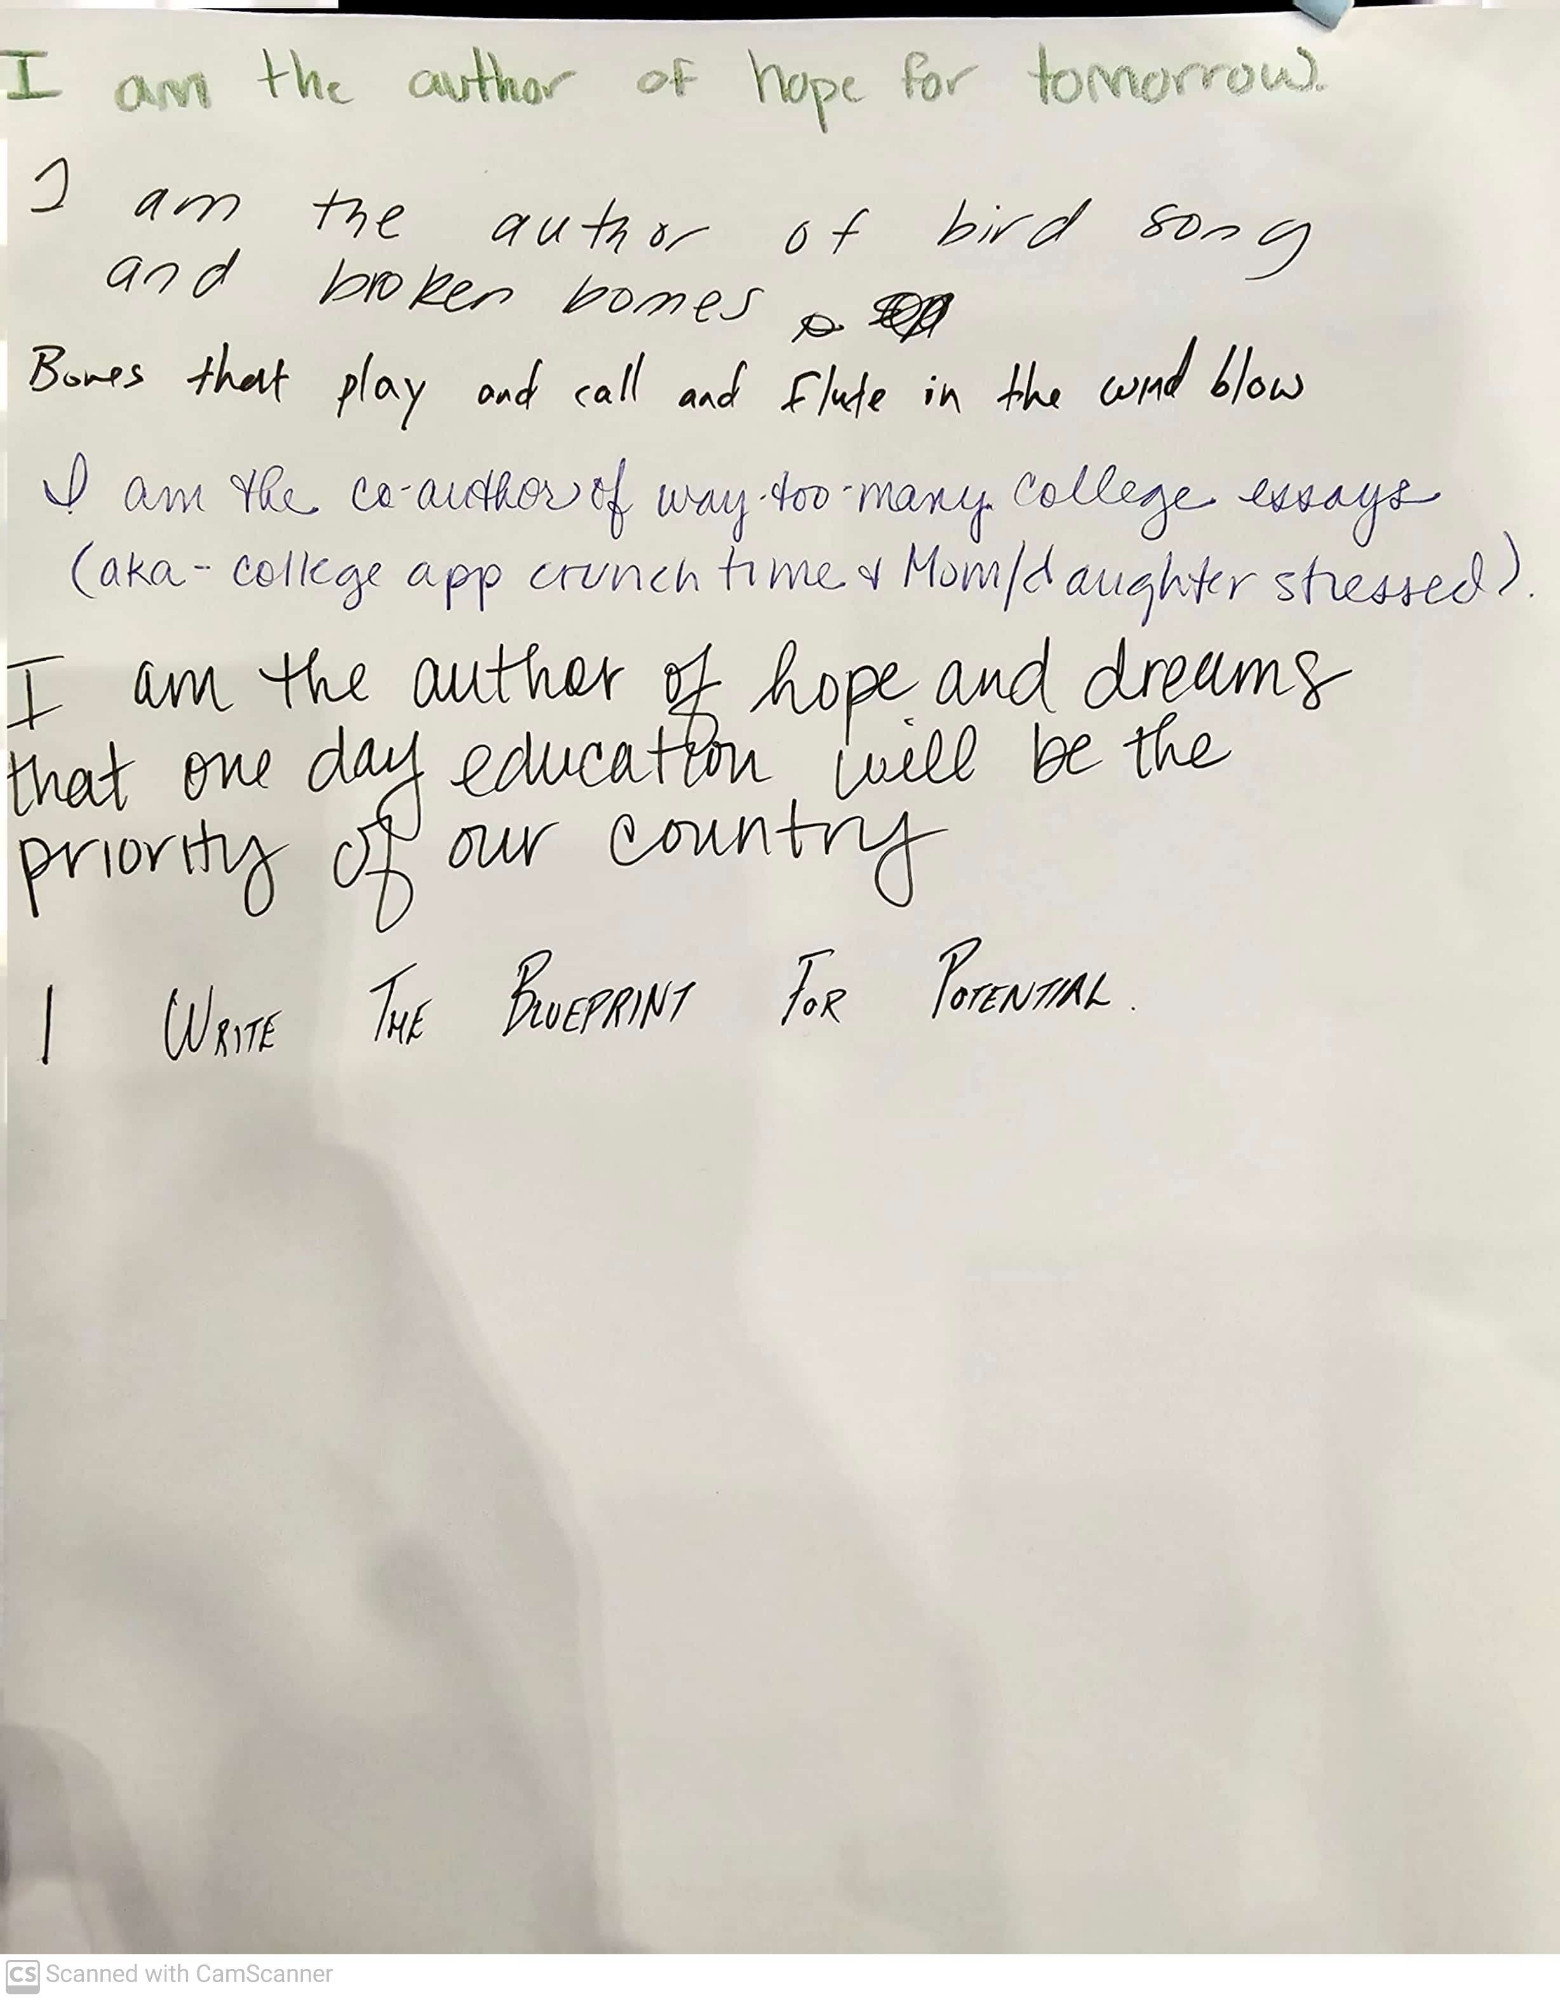 I am the author of hope for tomorrow.
I am the author of bird song
and broken bones.
Bones that play and call and flute in the wind blow
I am the co-author of way-too-many college essays
(aka - college app crunch time & Mom/daughter stressed).
I am the author of hope and dreams
that one day education will be the
priority of our country
I WRITE THE BLUEPRINT FOR POTENTIAL.
CS Scanned with CamScanner